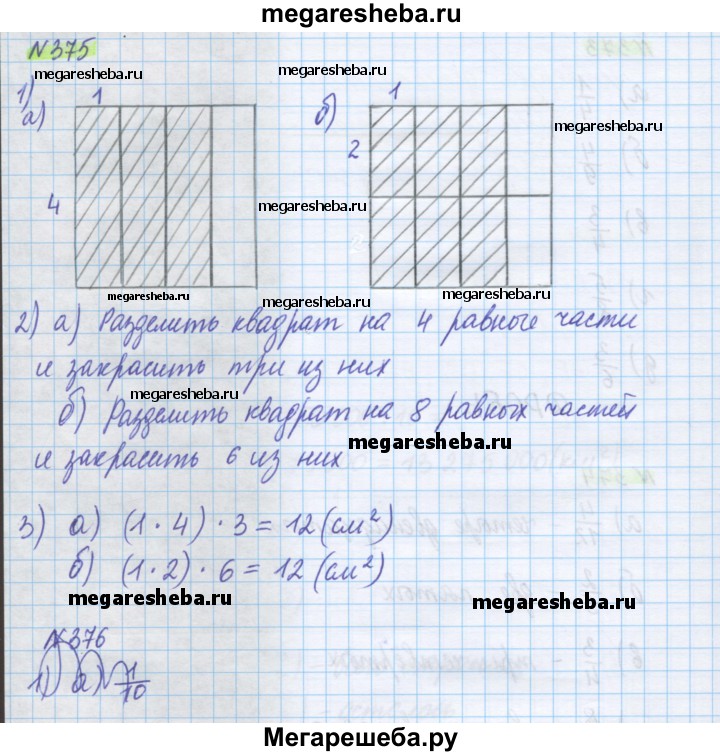 megaresheba.ru
N375
megaresheba.ru
megaresheba.ru
1)
а)
1
4
megaresheba.ru
б)
1
2
megaresheba.ru
megaresheba.ru
megaresheba.ru
megaresheba.ru
megaresheba.ru
2) а) Разделить квадрат на 4 равные части
и закрасить три из них
megaresheba.ru
б) Разделить квадрат на 8 равных частей
megaresheba.ru
и закрасить 6 из них
3) а) (1 · 4) · 3 = 12 (см²)
б) (1 · 2) · 6 = 12 (см²)
megaresheba.ru
megaresheba.ru
N376
1) а) 1/10
Мегарешеба.ру